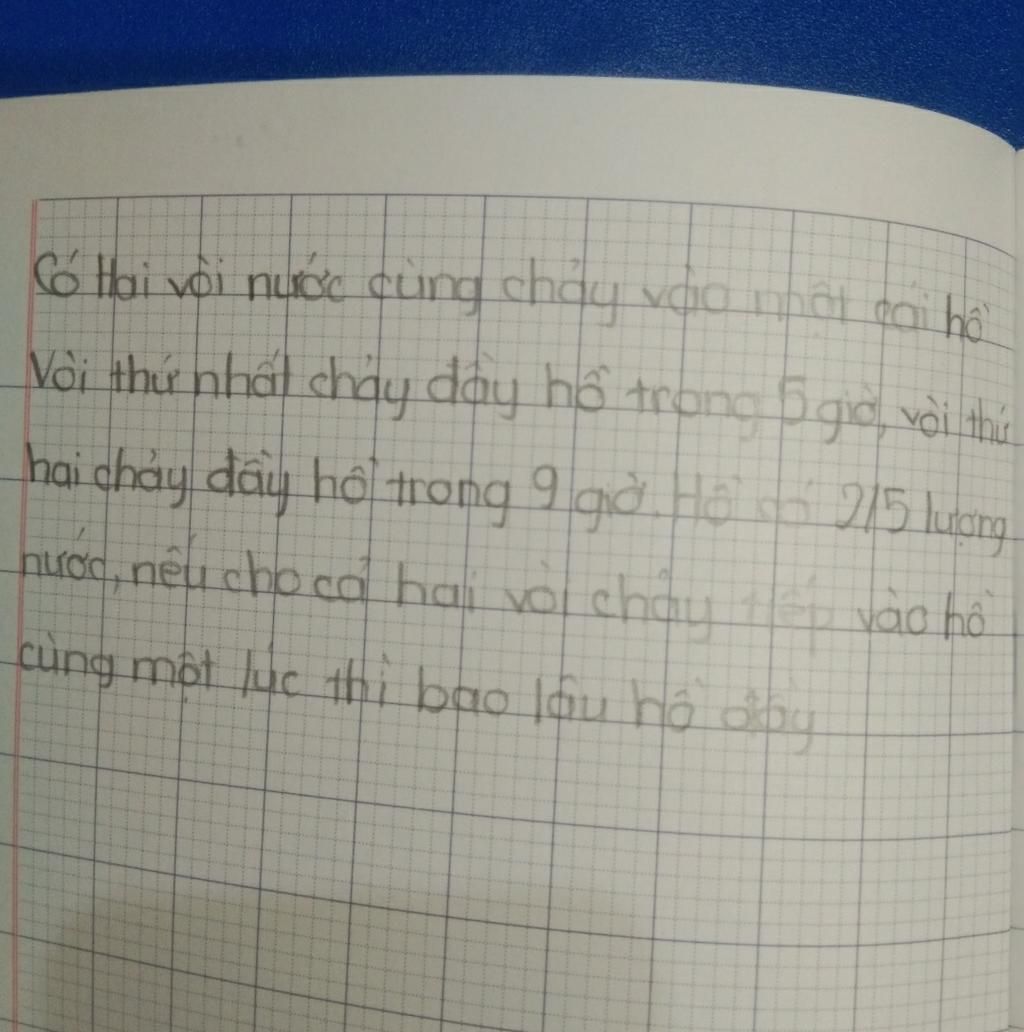 Có Hai vòi nước cùng chảy vào một cái hồ
Vòi thứ nhất chảy đầy hồ trong 5 giờ, vòi thứ
hai chảy đầy hồ trong 9 giờ. Hồ có 2/5 lượng
nước, nếu cho cả hai vòi chảy tiếp vào hồ
cùng một lúc thì bao lâu hồ đầy